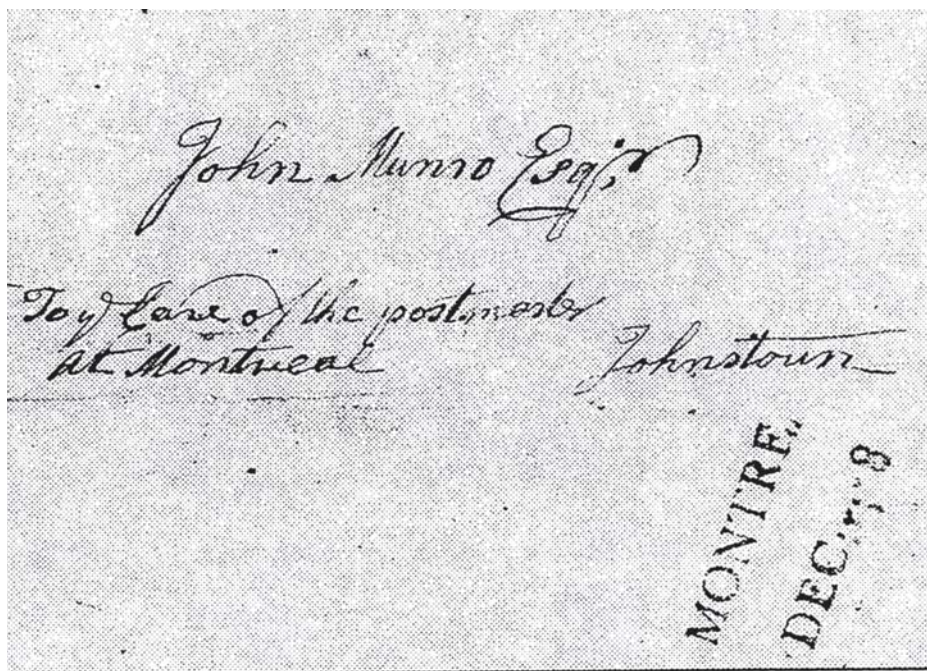 John Munro Esq;r
To ye Care of the postmaster
at Montreal
Johnstoun
MONTRE
DEC 8